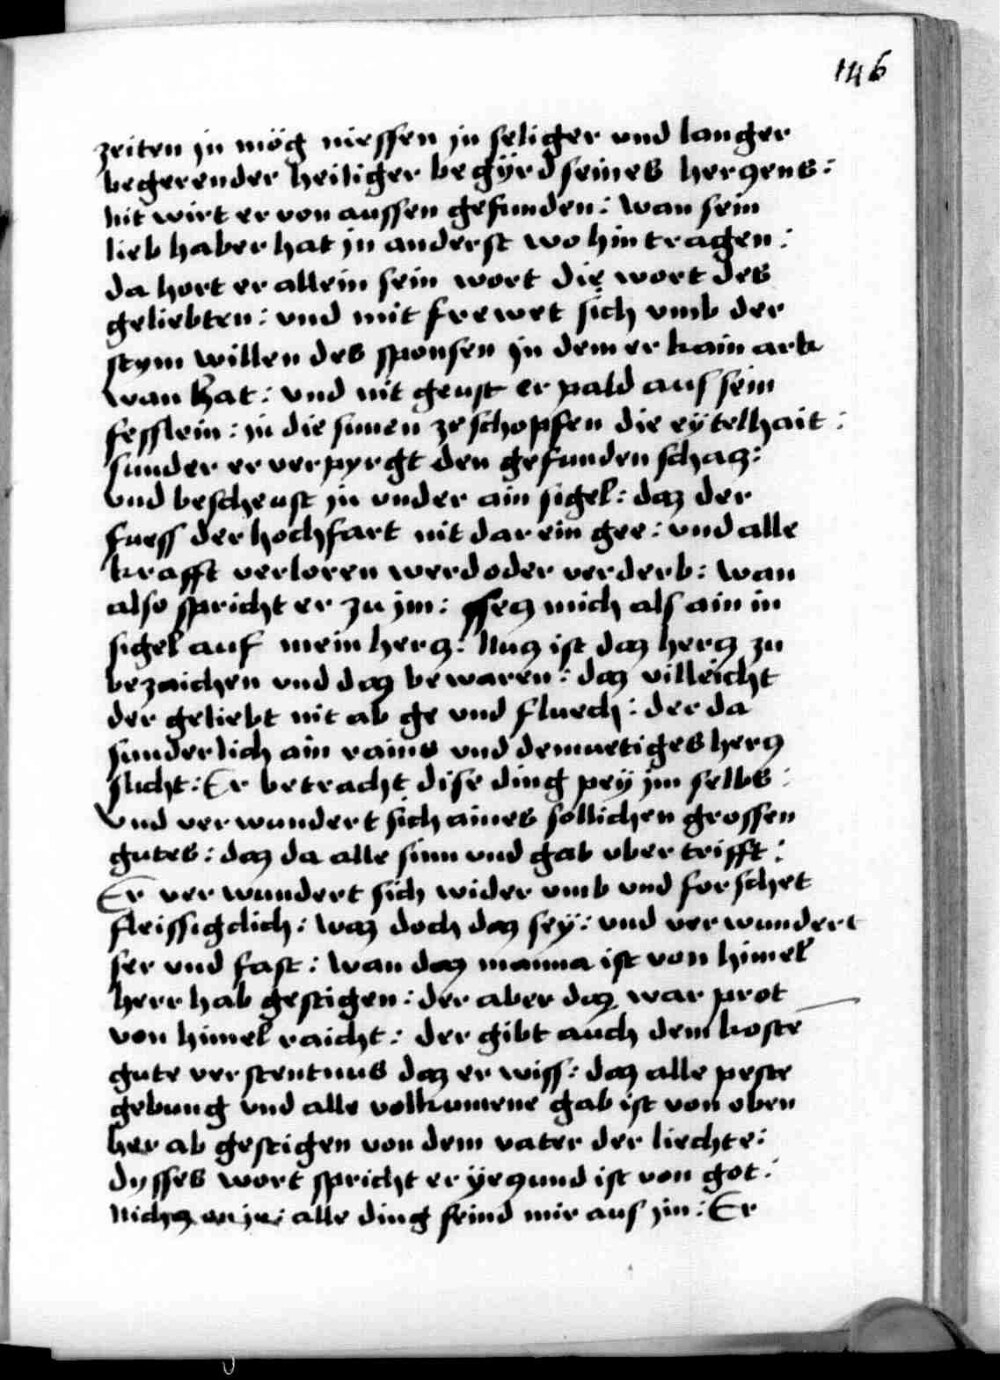 146
zeiten jn mög niessen jn seliger vnd langer
begerender heiliger begÿrd seines herczens :
Nit wirt er von aussen gefunden : wan sein
lieb haber hat jn anderst wo hin tragen :
da hort er allein sein wort die wort des
geliebten : vnd mit frewet sich vmb der
stym willen des sponsen jn dem er kain ark
wan hat : vnd nit geust er pald aus sein
fesslein : jn die sinnen ze schopfen die eÿtelhait :
sunder er verpyrgt den gefunden schacz :
vnd bescheust jn vnder ain sigel : daz der
fuess der hochfart nit darein gee : vnd alle
krafft verloren werd oder verderb : wan
also spricht er zu jm : secz mich als ain in
sigel auf mein hercz : Nucz ist daz hercz zu
bezaichen vnd daz bewaren : daz villeicht
der geliebt nit ab ge vnd fluech : der da
sunderlich ain rains vnd demuetiges hercz
sucht : Er betracht dise ding peÿ jm selbs :
Vnd verwundert sich aines sollichen grossen
gutes : daz da alle sinn vnd gab vbertrifft :
Er verwundert sich wider vmb vnd forschet
fleissigclich : waz doch daz seÿ : vnd verwundert
ser vnd fast : wan daz manna ist von himel
herr hab gestigen : der aber daz war prot
von himel raicht : der gibt auch dem koste
gute verstentnus daz er wiss : daz alle peste
gebung vnd alle volkumene gab ist von oben
her ab gestigen von dem vater der liechte :
dysses wort spricht er ÿeczund ist von got :
Nichcz an jn : alle ding seind mir aus jm : Er